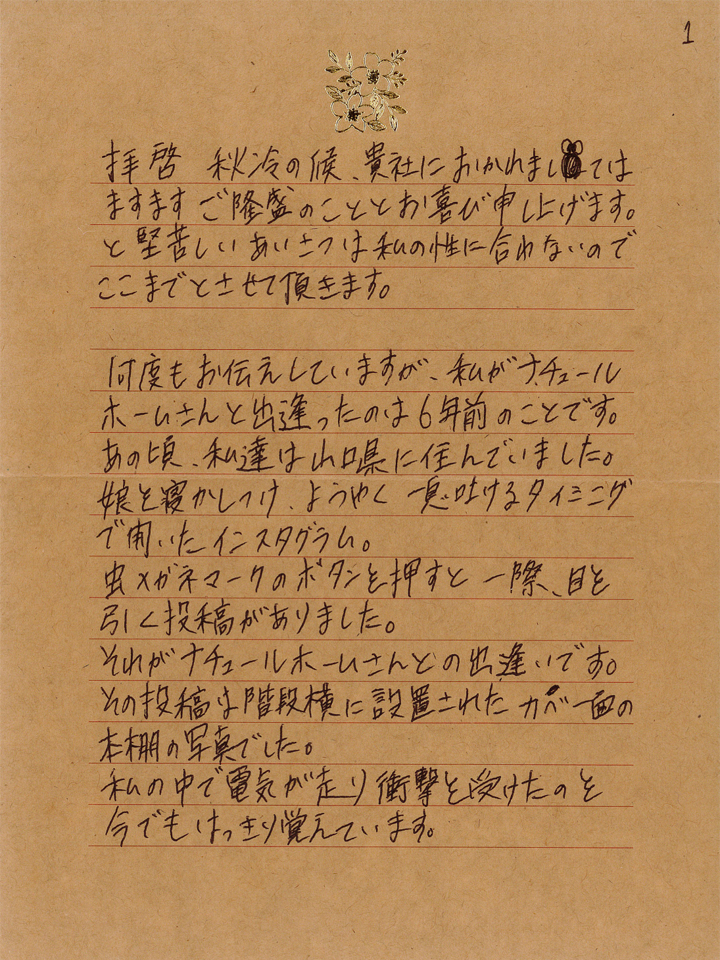 1
拝啓 秋冷の候、貴社におかれましては
ますます ご隆盛のこととお喜び申し上げます。
と堅苦しいあいさつは私の性に合わないので
ここまでとさせて頂きます。
何度もお伝えしていますが、私がナチュール
ホームさんと出逢ったのは6年前のことです。
あの頃、私達は山口県に住んでいました。
娘を寝かしつけ、ようやく一息吐けるタイミング
で開いたインスタグラム。
虫メガネマークのボタンを押すと一際、目を
引く投稿がありました。
それがナチュールホームさんとの出逢いです。
その投稿は階段横に設置されたカベ一面の
本棚の写真でした。
私の中で電気が走り衝撃を受けたのを
今でもはっきり覚えています。